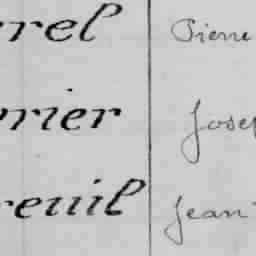 rel Pierre
rier Josep
reuil Jean